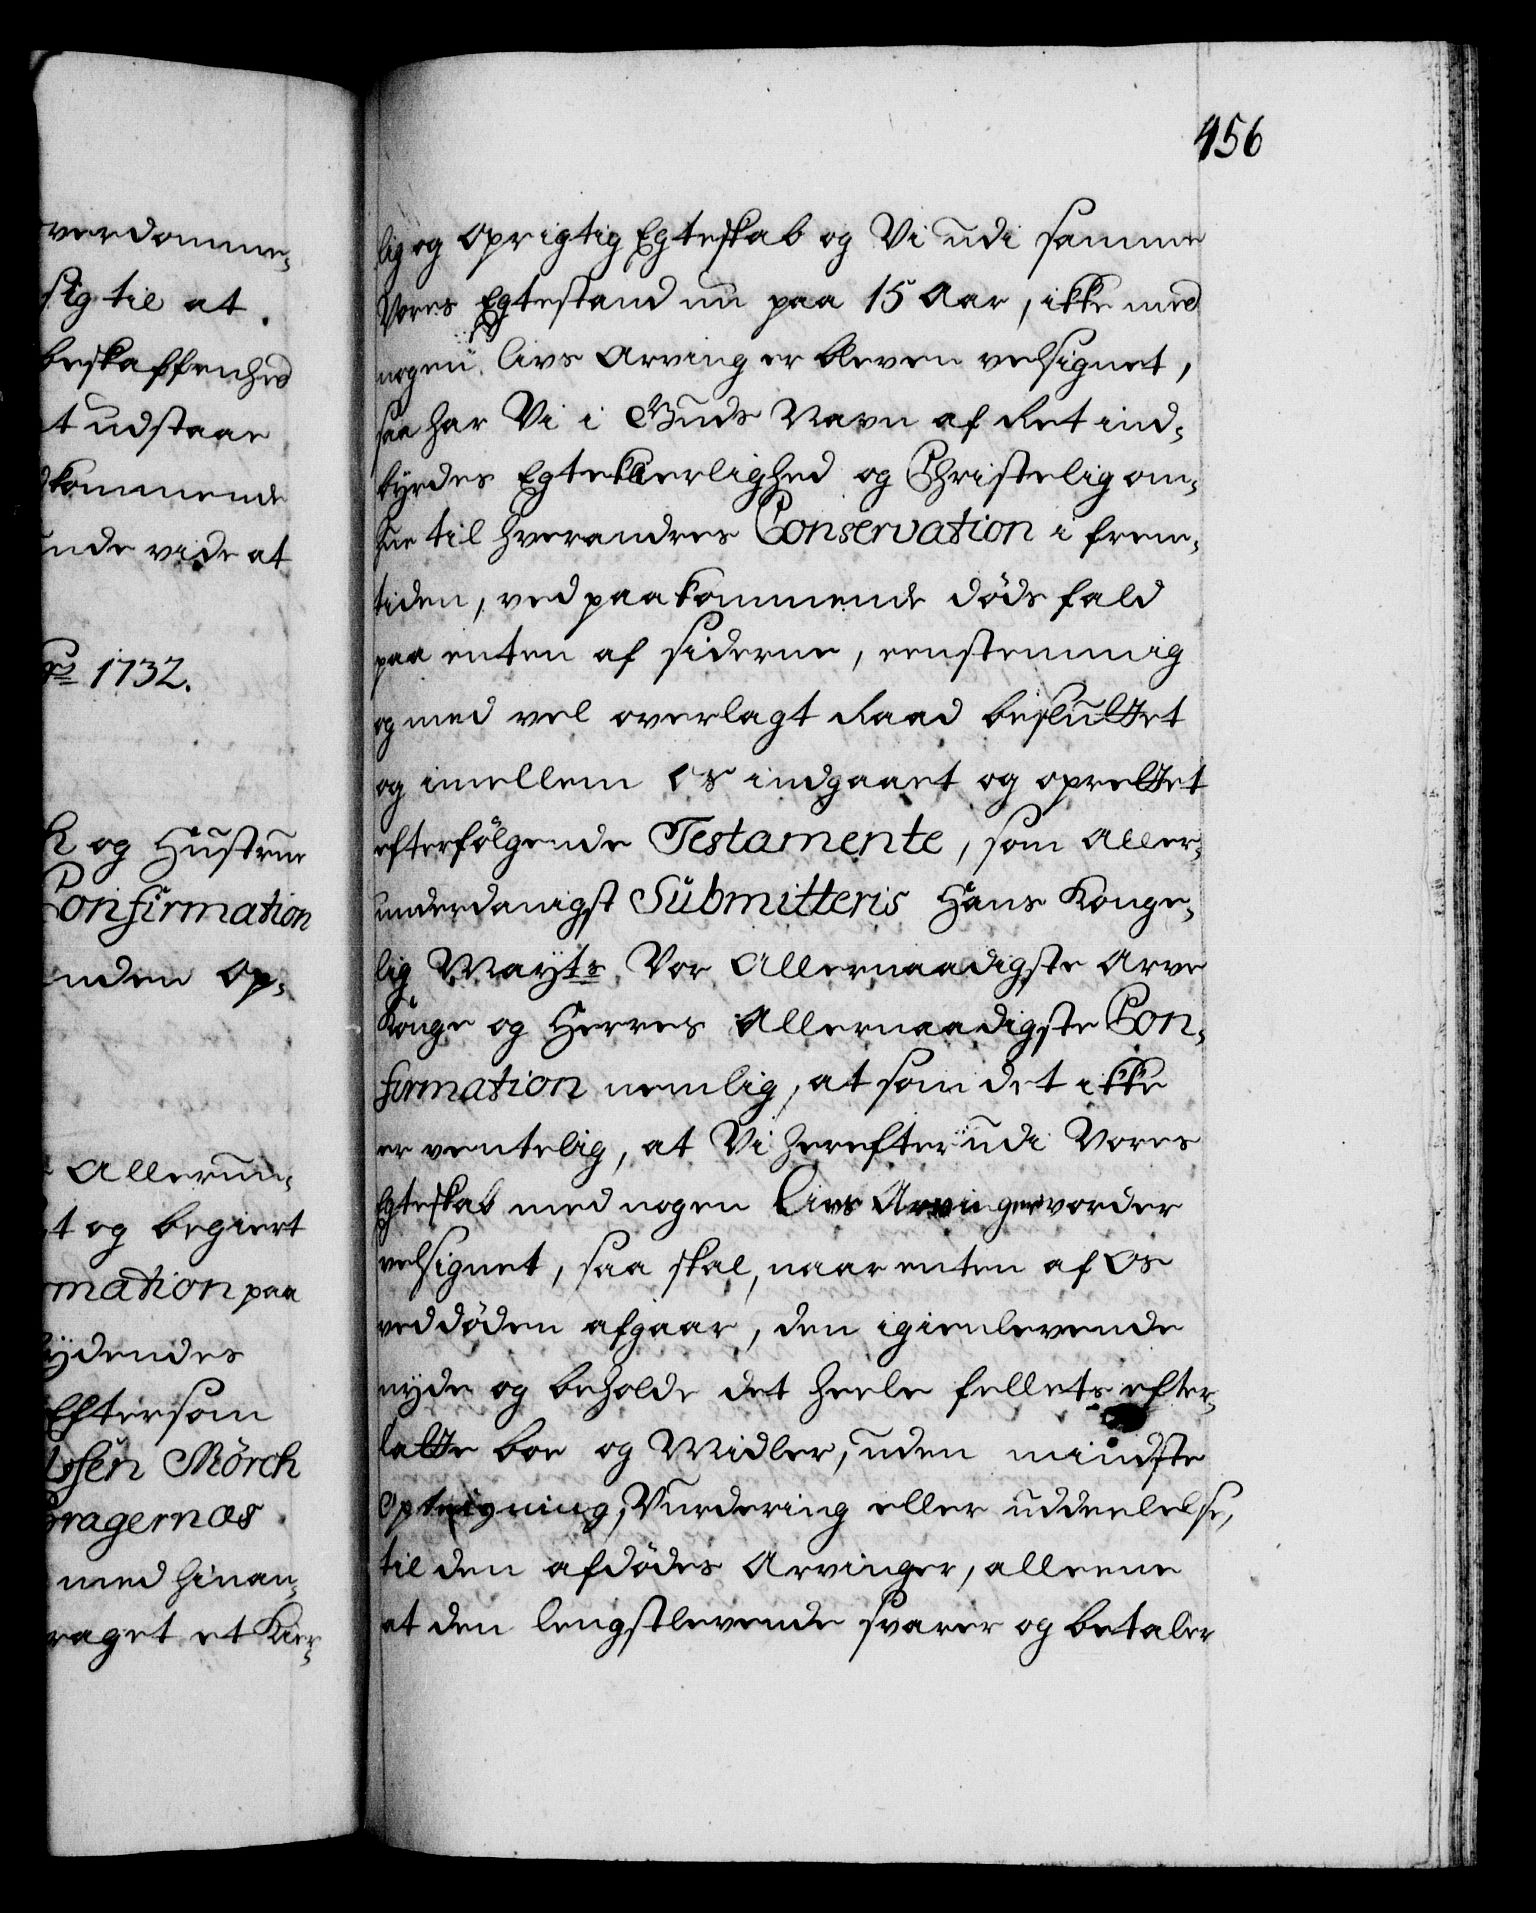 verdomme,
sig til at
beskaffenhed
t udstaae
dkommende
unde vide at
1732.
og Hustrue
Confirmation
nden Op,
Allerun,
t og begiert
rmation paa
lydendes
Eftersom
sen Mörch
Bragernæs
med hinan,
raget et Kier,
456
lig og Oprigtig Egteskab og Vi udi samme
Vores Egtestand nu paa 15 Aar, ikke med
nogen Livs Arvinger bleven velsignet,
saa har Vi i Guds Navn af Ret ind,
byrdes Egtekierlighed og Christelig om,
hue til hverandres Conservation i frem,
tiden, ved paakommende döds fald
paa enten af siderne, eenstemmig
og med vel overlagt Raad besluttet
og imellem os indgaaet og oprettet
efterfölgende Testamente, som Aller,
underdanigst Submitteris Hans Konge,
lig Mayts Vor Allernaadigste Arve
Konge og Herres Allernaadigste Con,
firmation nemlig, at som det ikke
er ventelig, at Vi herefter udi Vores
Egteskab med nogen Livs Arvinger vorder
velsignet, saa skal, naar enten af Os
ved döden afgaar, den igienlevende
nyde og beholde det heele fellets efter,
latte boe og Midler, uden mindste
Opteigning, Vurdering eller uddeelelse,
til den afdödes Arvinger, alleene
at den lengstlevende svarer og betaler